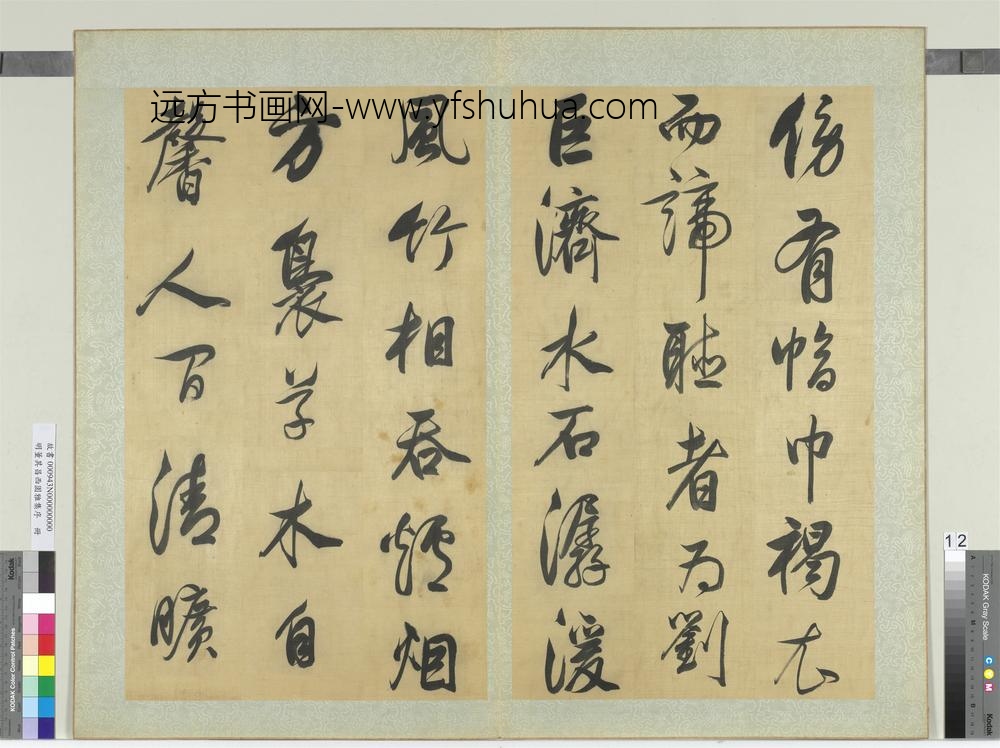 远方书画网-www.yfshuhua.com
傍有幅巾褐衣
而諦聽者為劉
巨濟水石潺湲
風竹相吞爐烟
方裊草木自
馨人間清曠
故書 000943N000000000
明董其昌西園雅集序 冊
12
KODAK Gray Scale
C Y M
Kodak
A
M
B
Kodak
KODAK Color Control Patches